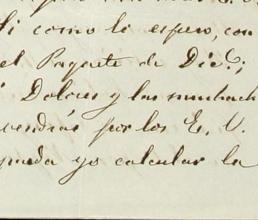 Si como lo espero, con
el Paquete de Dic.e;
Dolores y las muchach
vendrás por los E. U.
pueda yo calcular la